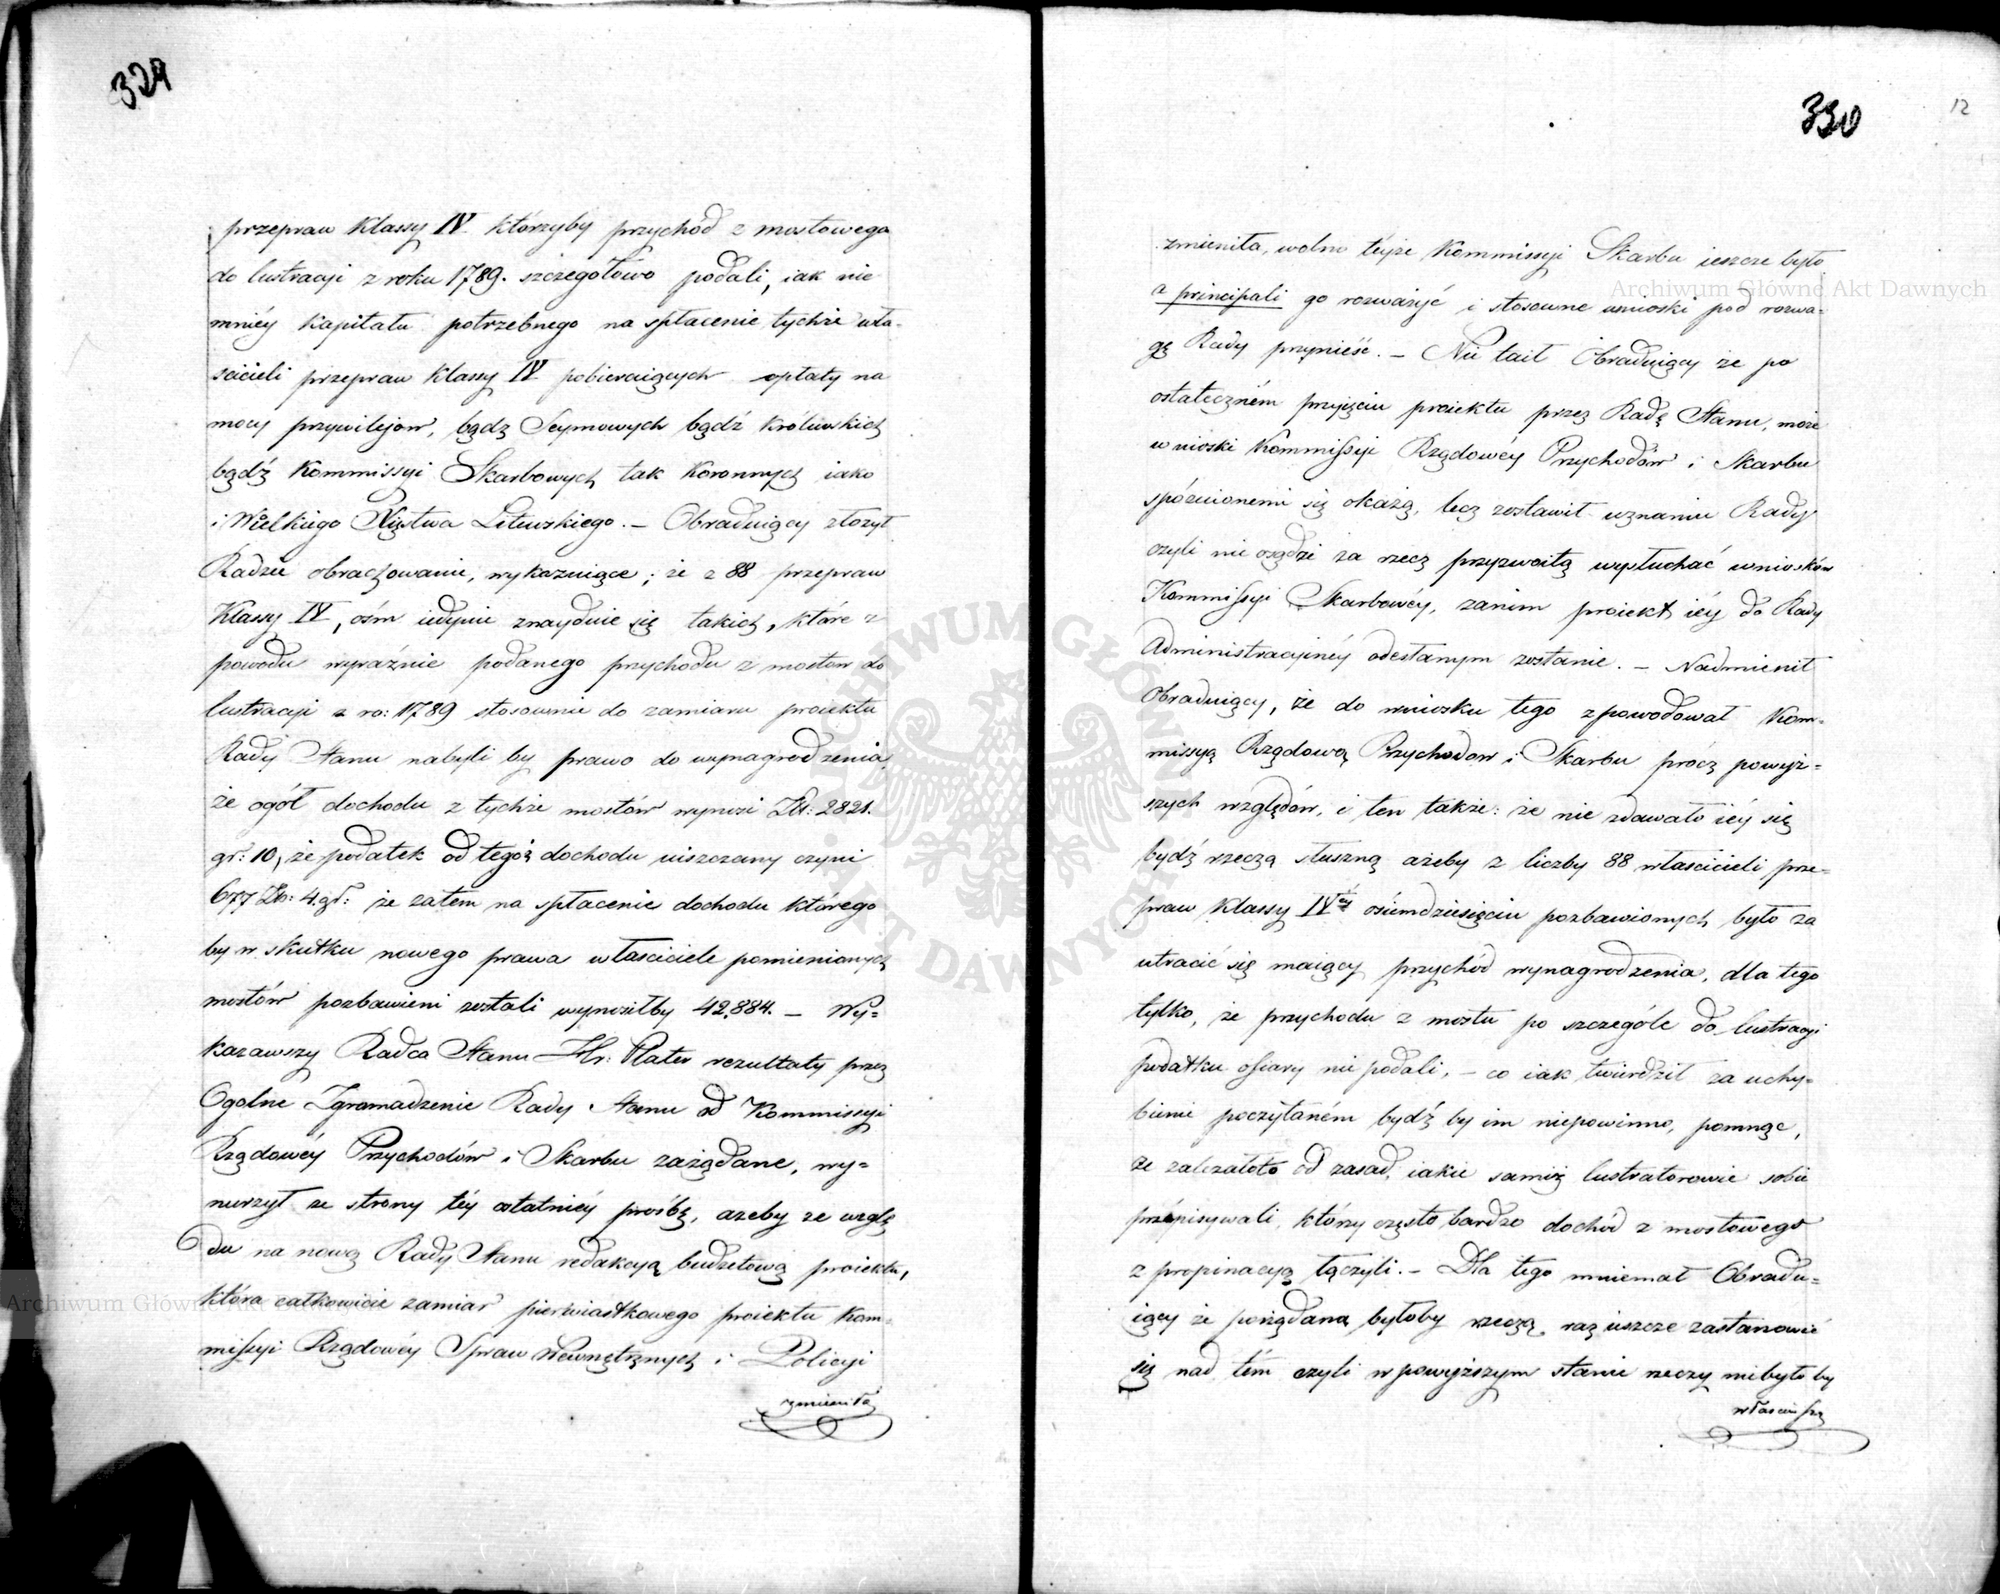 329
przepraw Klassy IV. którzyby przychód z mostowego
do lustracyi z roku 1789. szczegółowo podali, iak nie
mniéy kapitału potrzebnego na spłacenie tychże wła-
scicieli przepraw Klassy IV pobieraiących opłaty na
mocy przywilejow, bądz Seymowych bądź Królewskich
bądź Kommissyi Skarbowych tak Koronnych iako
i Wielkiego Xięstwa Litewskiego. – Obraduiący złożył
Radzie obrachowanie, wykazuiące; że z 88 przepraw
Klassy IV, ośm iedynie znayduie się takich, które z
powodu wyraźnie podanego przychodu z mostow do
lustracyi z ro: 1789 stosownie do zamiaru proiektu
Rady Stanu nabyli by prawo do wynagrodzenia,
że ogół dochodu z tychże mostów wynosi Zł: 2821.
gr: 10, że podatek od tegoż dochodu uiszczany czyni
677 Zło: 4. gr: że zatem na spłacenie dochodu którego
by w skutku nowego prawa właściciele pomienionych
mostów pozbawieni zostali wynosiłby 42,884. – Wy=
kazawszy Radca Stanu Hr: Plater rezultaty przez
Ogolne Zgromadzenie Rady Stanu od Kommissyi
Rządowéy Przychodów i Skarbu zażądane, wy=
nurzył ze strony téy ostatniéy proźbę, ażeby ze wzglę
du na nową Rady Stanu redakcyą budżetową proiektu,
która całkowicie zamiar pierwiastkowego proiektu Kom-
missyi Rządowéy Spraw Wewnętrznych i Policyi
zmieniła
330
12
zmieniła, wolno téyże Kommissyi Skarbu ieszcze było
a principali go rozważyć i stosowne wnioski pod rozwa=
gę Rady przynieść. – Nie taił Obraduiący że po
ostateczném przyięciu proiektu przez Radę Stanu, może
wnioski Kommissyi Rządowéy Przychodów i Skarbu
spóźnionemi się okażą, lecz zostawił uznaniu Rady
czyli nie osądzi za rzecz przyzwoitą wysłuchać wniosków
Kommissyi Skarbowéy, zanim proiekt iéy do Rady
Administracyinéy odesłanym zostanie. – Nadmienił
Obraduiący, że do wniosku tego zpowodował Kom=
missyą Rządową Przychodow i Skarbu prócz powyż=
szych względów, i ten także: że nie zdawało iéy się
bydź rzeczą słuszną ażeby z liczby 88 właścicieli prze=
praw Klassy IVéy osiemdziesięciu pozbawionych było za
utracić się maiący przychód wynagrodzenia, dla tego
tylko, że przychodu z mostu po szczególe do lustracyi
podatku ofiary nie podali, – co iak twierdził za uchy=
bienie poczytaném bydź by im niepowinno, pomnąc,
że zależało to od zasad, iakie samiż lustratorowie sobie
przepisywali, którzy często bardzo dochód z mostowego
z propinacyą łączyli. – Dla tego mniemał Obradu=
iący że pożądaną byłoby rzeczą raz ieszcze zastanowić
się nad tém czyli w powyższym stanie rzeczy niebyło by
właściwszą
Archiwum Główne Akt Dawnych
ARCHIWUM GŁÓWNE AKT DAWNYCH